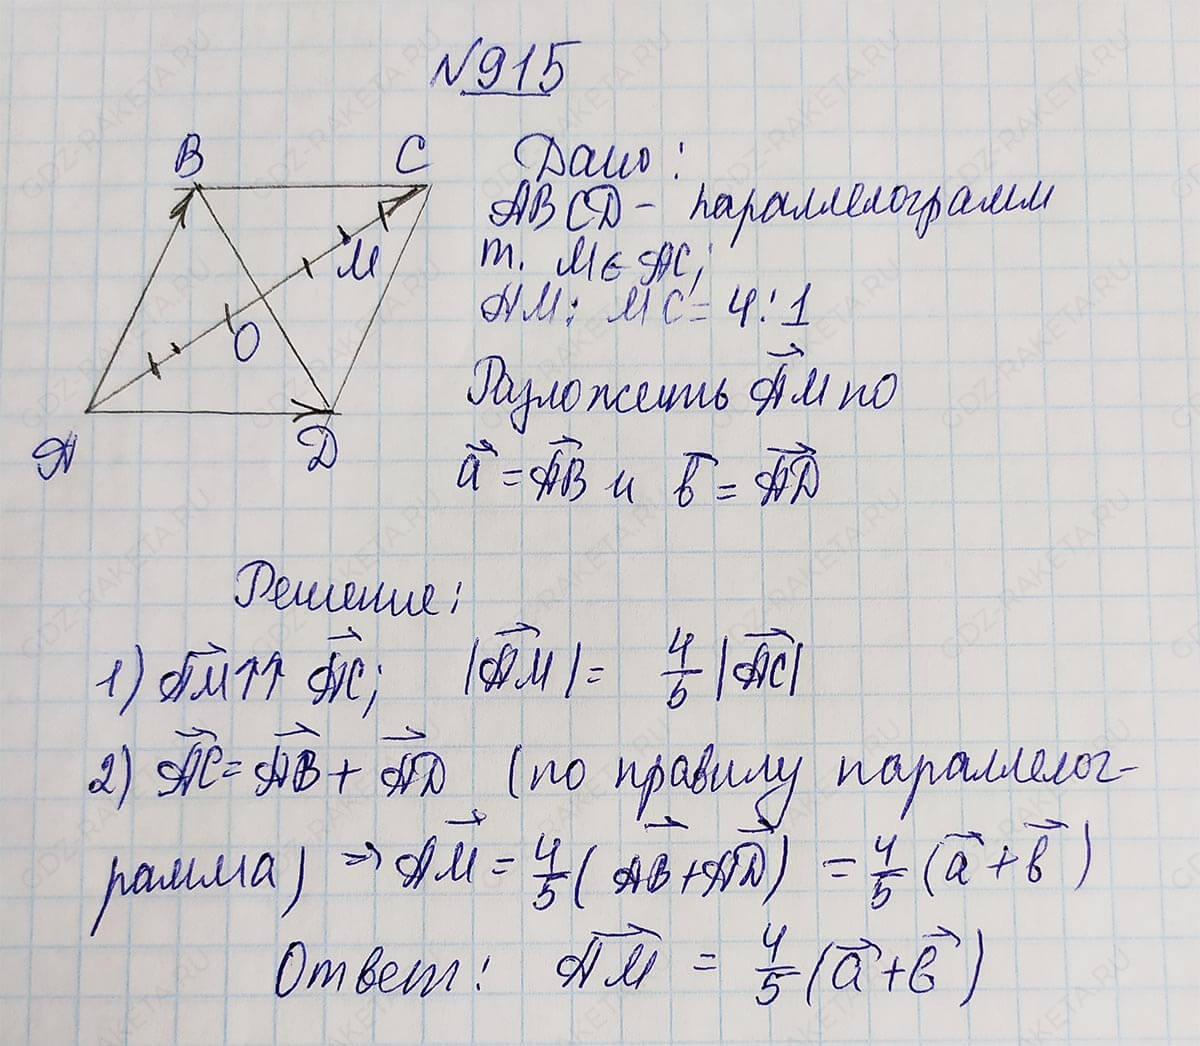 №915
B C
M
O
A D
Дано:
ABCD - параллелограмм
т. M ∈ AC;
AM : MC = 4 : 1
Разложить \vec{AM} по
\vec{a} = \vec{AB} и \vec{b} = \vec{AD}
Решение:
1) \vec{AM} ↑↑ \vec{AC}; |\vec{AM}| = \frac{4}{5} |\vec{AC}|
2) \vec{AC} = \vec{AB} + \vec{AD} (по правилу параллелог-
рамма) => \vec{AM} = \frac{4}{5} (\vec{AB} + \vec{AD}) = \frac{4}{5} (\vec{a} + \vec{b})
Ответ: \vec{AM} = \frac{4}{5} (\vec{a} + \vec{b})
GDZ-RAKETA.RU